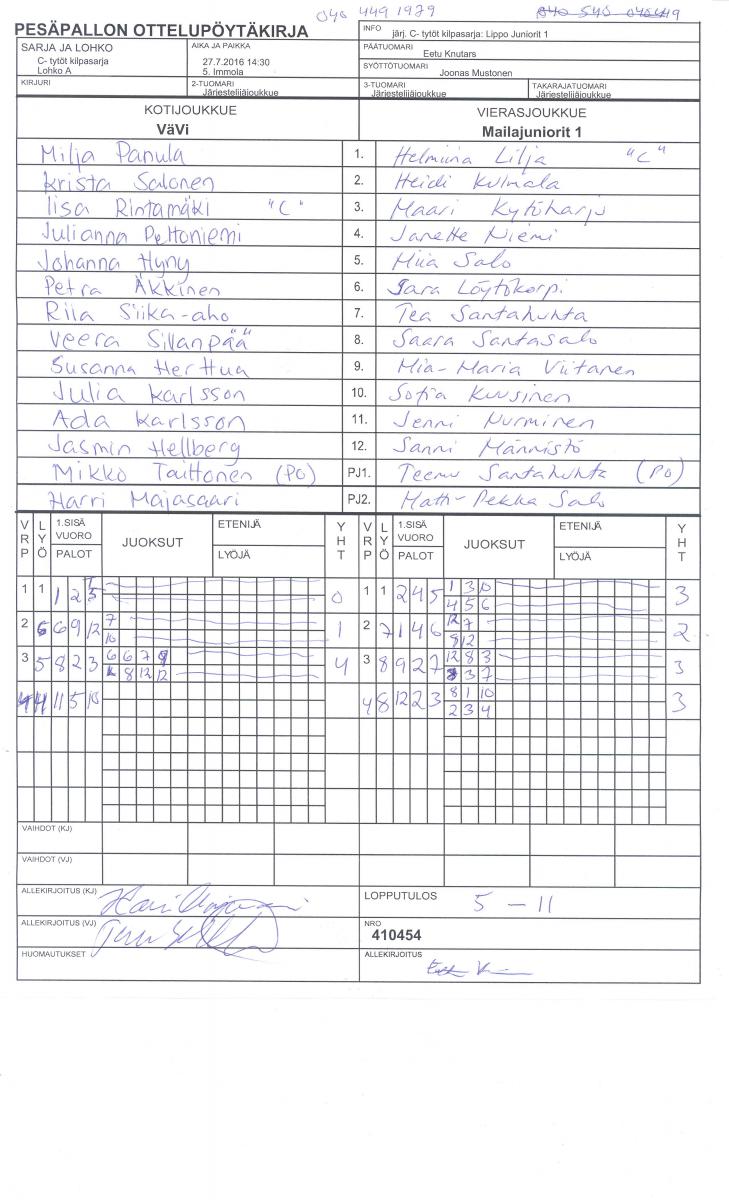 040 449 1979
PESÄPALLON OTTELUPÖYTÄKIRJA
INFO järj. C- tytöt kilpasarja: Lippo Juniorit 1
SARJA JA LOHKO
C- tytöt kilpasarja
Lohko A
AIKA JA PAIKKA
27.7.2016 14:30
5. Immola
PÄÄTUOMARI Eetu Knutars
SYÖTTÖTUOMARI Joonas Mustonen
KIRJURI
2-TUOMARI
Järjestelijäjoukkue
3-TUOMARI
Järjestelijäjoukkue
TAKARAJATUOMARI
Järjestelijäjoukkue
KOTIJOUKKUE VIERASJOUKKUE
VäVi Mailajuniorit 1
Milja Panula 1. Helmiina Lilja "C"
Krista Salonen 2. Heidi Kulmala
Iisa Rintamäki "C" 3. Maari Kytöharju
Julianna Peltoniemi 4. Janette Niemi
Johanna Hyny 5. Miia Salo
Petra Äkkinen 6. Sara Löytökorpi
Riia Siika-aho 7. Tea Santahuhta
Veera Sillanpää 8. Saara Santasalo
Susanna Herttua 9. Mia-Maria Viitanen
Julia Karlsson 10. Sofia Kuusinen
Ada Karlsson 11. Jenni Nurminen
Jasmin Hellberg 12. Sanni Männistö
Mikko Taittonen (PO) PJ1. Teemu Santahuhta (PO)
Harri Majasaari PJ2. Matti-Pekka Salo
VRP LYÖ 1.SISÄ VUORO PALOT JUOKSUT ETENIJÄ LYÖJÄ YHT VRP LYÖ 1.SISÄ VUORO PALOT JUOKSUT ETENIJÄ LYÖJÄ YHT
1 1 1 2 0 1 1 2 4 5 1 3 10 3
4 5 6
2 6 6 9 12 7 1 2 7 1 4 6 12 7 2
10 8 12
3 5 8 2 3 6 6 7 9 4 3 8 9 2 7 12 8 3 3
8 12 12 3 7
4 4 11 5 10 4 8 12 2 3 8 1 10 3
2 3 4
VAIHDOT (KJ)
VAIHDOT (VJ)
ALLEKIRJOITUS (KJ)
LOPPUTULOS 5 - 11
ALLEKIRJOITUS (VJ)
NRO
410454
HUOMAUTUKSET
ALLEKIRJOITUS